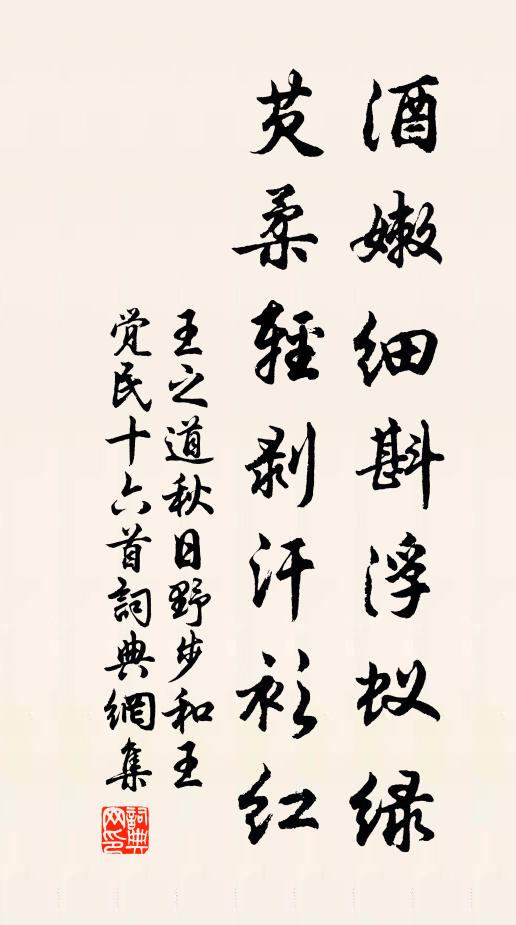 酒嫩细斟浮蚁绿
芡柔轻剥汗衫红
王之道秋日野步和王
觉民十六首詞典網集
詞典網印